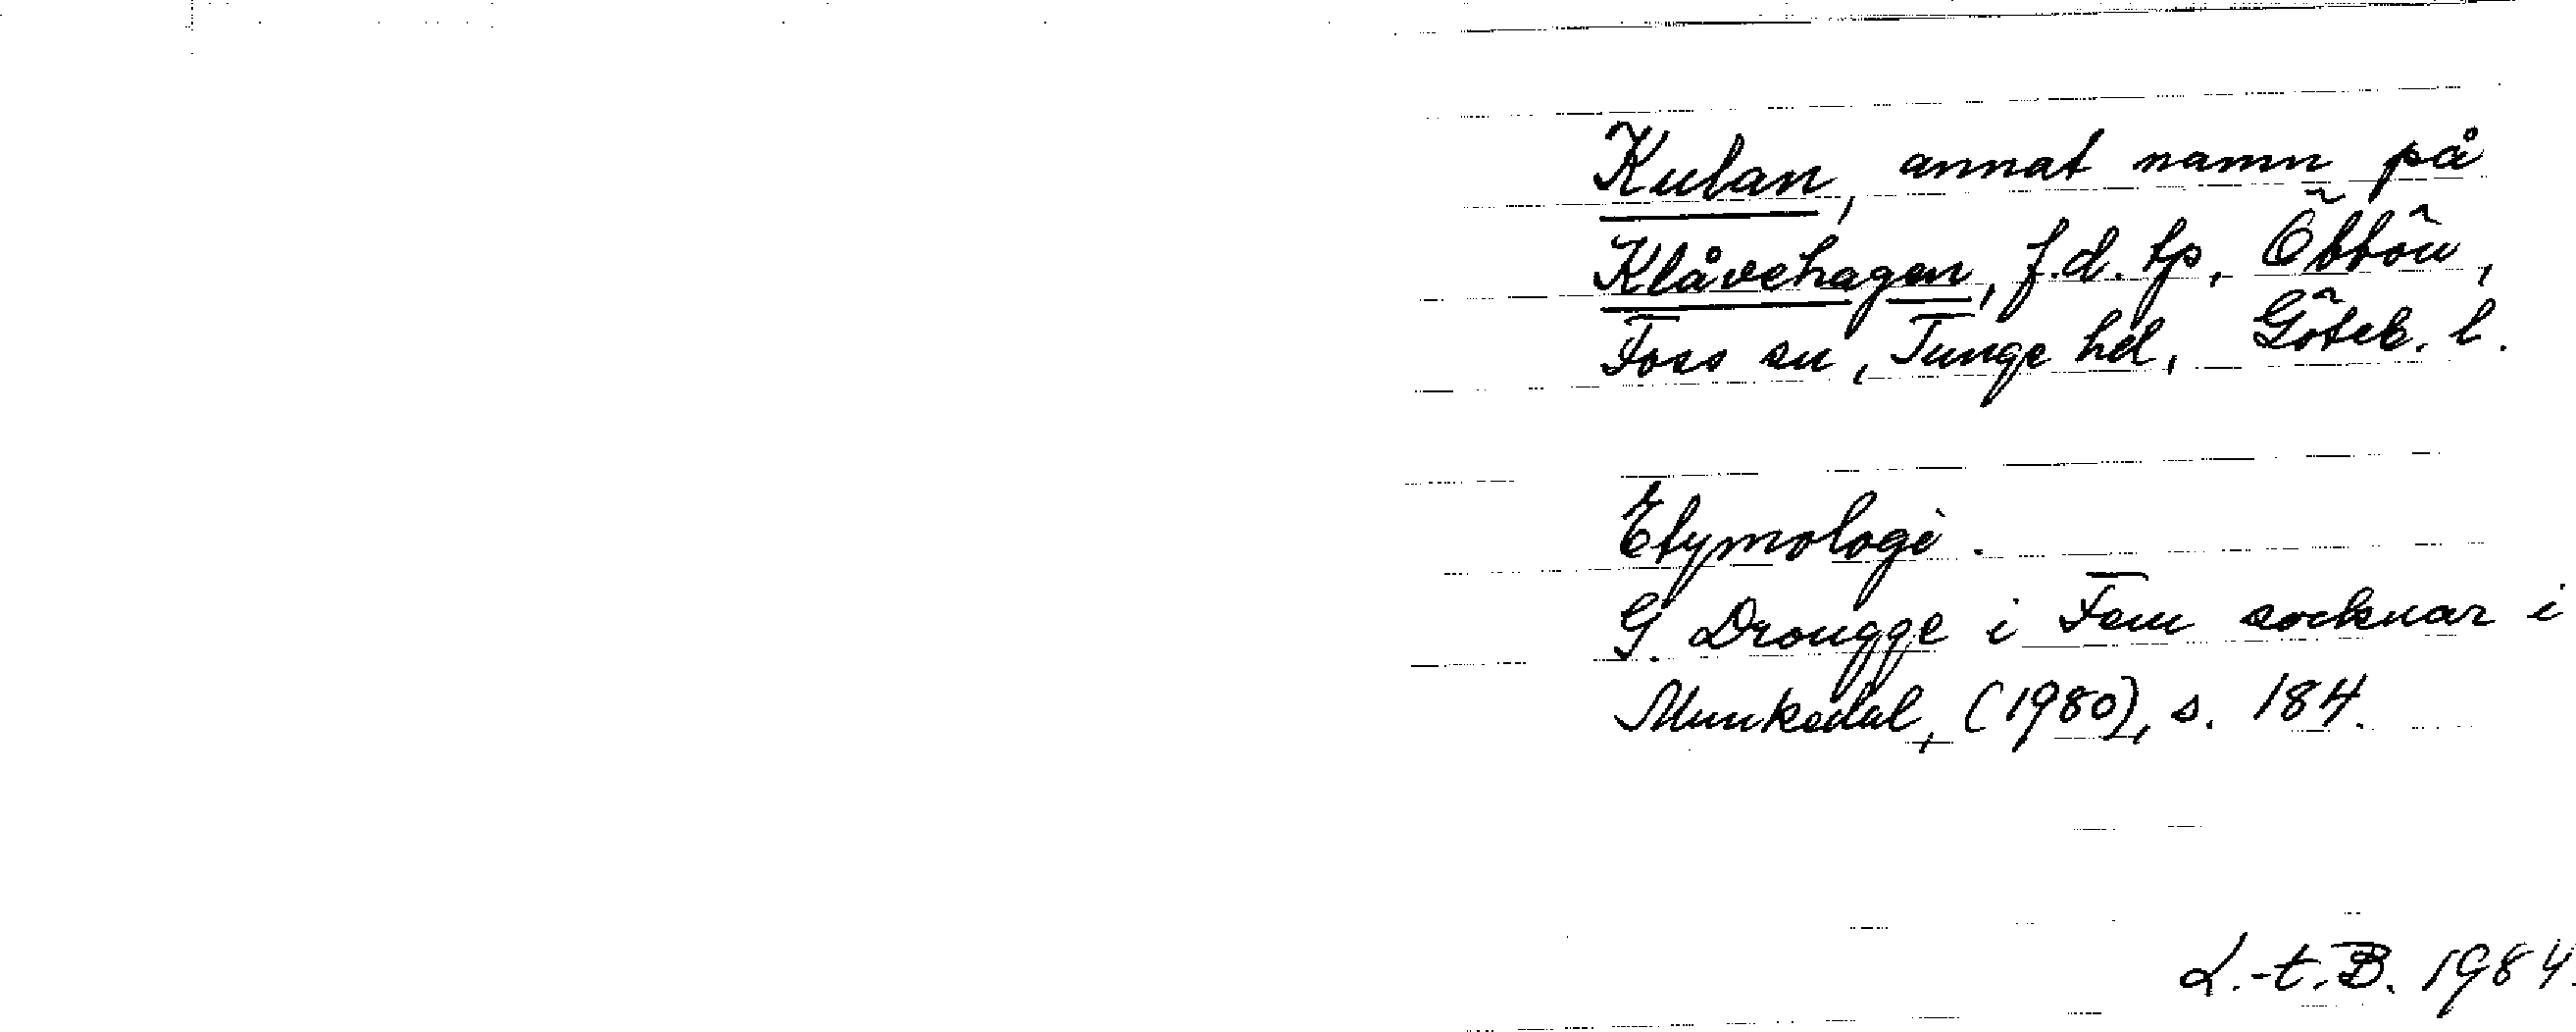 Kulan, annat namn på
Klåvehagen, f.d. tp, Öbbön,
Foss sn, Tunge hd, Göteb. l.
Etymologi.
G. Drougge i Fem socknar i
Munkedal, (1980), s. 184.
L.-t.B. 1984.